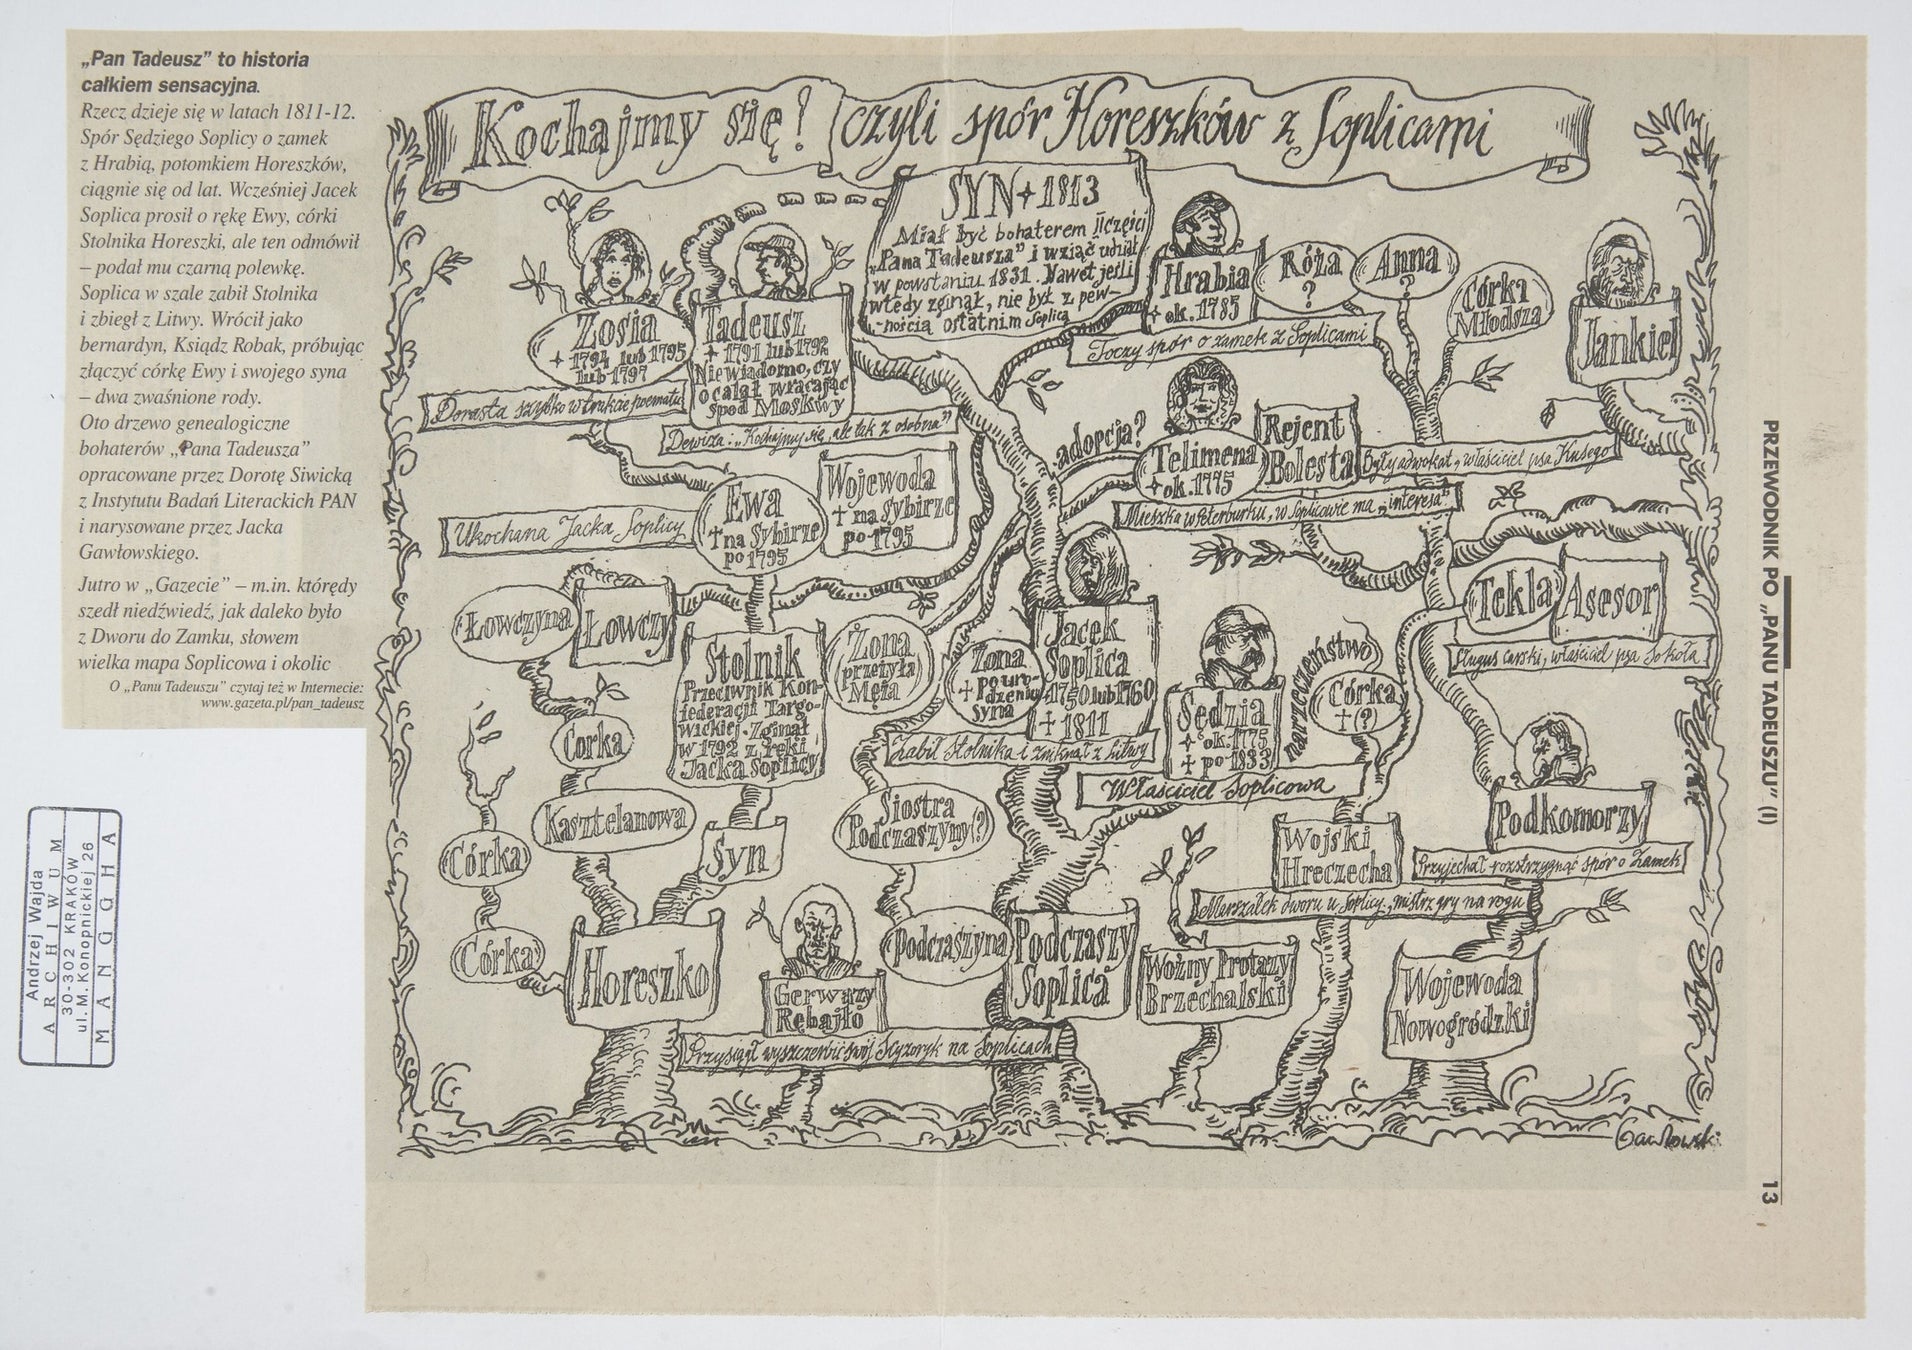 „Pan Tadeusz” to historia
całkiem sensacyjna.
Rzecz dzieje się w latach 1811-12.
Spór Sędziego Soplicy o zamek
z Hrabią, potomkiem Horeszków,
ciągnie się od lat. Wcześniej Jacek
Soplica prosił o rękę Ewy, córki
Stolnika Horeszki, ale ten odmówił
– podał mu czarną polewkę.
Soplica w szale zabił Stolnika
i zbiegł z Litwy. Wrócił jako
bernardyn, Ksiądz Robak, próbując
złączyć córkę Ewy i swojego syna
– dwa zwaśnione rody.
Oto drzewo genealogiczne
bohaterów „Pana Tadeusza”
opracowane przez Dorotę Siwicką
z Instytutu Badań Literackich PAN
i narysowane przez Jacka
Gawłowskiego.
Jutro w „Gazecie” – m.in. którędy
szedł niedźwiedź, jak daleko było
z Dworu do Zamku, słowem
wielka mapa Soplicowa i okolic
O „Panu Tadeuszu” czytaj też w Internecie:
www.gazeta.pl/pan_tadeusz
Kochajmy się! czyli spór Horeszków z Soplicami
SYN + 1813
Miał być bohaterem II części
„Pana Tadeusza” i wziąć udział
w powstaniu 1831. Nawet jeśli
wtedy zginął, nie był z pew-
nością ostatnim Soplicą
Hrabia
ok. 1785
Toczy spór o zamek z Soplicami
Róża
?
Anna
?
Córka
Młodsza
Jankiel
Zosia
+ 1794 lub 1795
lub 1797
Dorasta szybko w trakcie poematu
Tadeusz
+ 1791 lub 1792
Niewiadomo, czy
ocalał wracając
spod Moskwy
Dewiza: „Kochajmy się, ale tak z osobna”
adopcja?
Telimena
ok. 1775
Rejent
Bolesta
Były adwokat, właściciel psa Kusego
Mieszka w Peterburku, w Soplicowie ma „interesa”
Ewa
† na Sybirze
po 1795
Ukochana Jacka Soplicy
Wojewoda
† na Sybirze
po 1795
Tekla
Asesor
Sługus carski, właściciel psa Sokoła
Łowczyna
Łowczy
Stolnik
Przeciwnik Kon-
federacji Targo-
wickiej. Zginął
w 1792 z ręki
Jacka Soplicy
Żona
(przeżyła
Męża
Żona
† po uro-
dzeniu
syna
Jacek
Soplica
1750 lub 1760
† 1811
Zabił Stolnika i zniknął z Litwy
Sędzia
ok. 1775
† po 1833
Właściciel Soplicowa
narzeczeństwo
Córka
† (?)
Podkomorzy
Przyjechał rozstrzygnąć spór o Zamek
Córka
Kasztelanowa
Syn
Córka
Córka
Siostra
Podczaszyny(?)
Wojski
Hreczecha
Marszałek dworu u Soplicy, mistrz gry na rogu
Horeszko
Gerwazy
Rębajło
Przysiągł wyszczerbić swój Scyzoryk na Soplicach
Podczaszyna
Podczaszy
Soplica
Woźny Protazy
Brzechalski
Wojewoda
Nowogródzki
Gawłowski
PRZEWODNIK PO „PANU TADEUSZU” (I)
13
Andrzej Wajda
ARCHIWUM
30-302 KRAKÓW
ul. M. Konopnickiej 26
MANGGHA